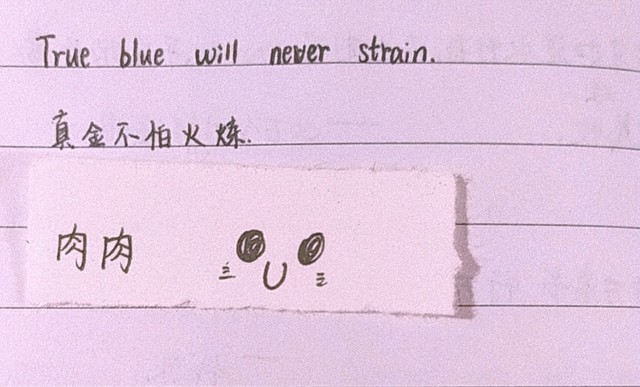 True blue will never strain.
真金不怕火炼.
肉肉